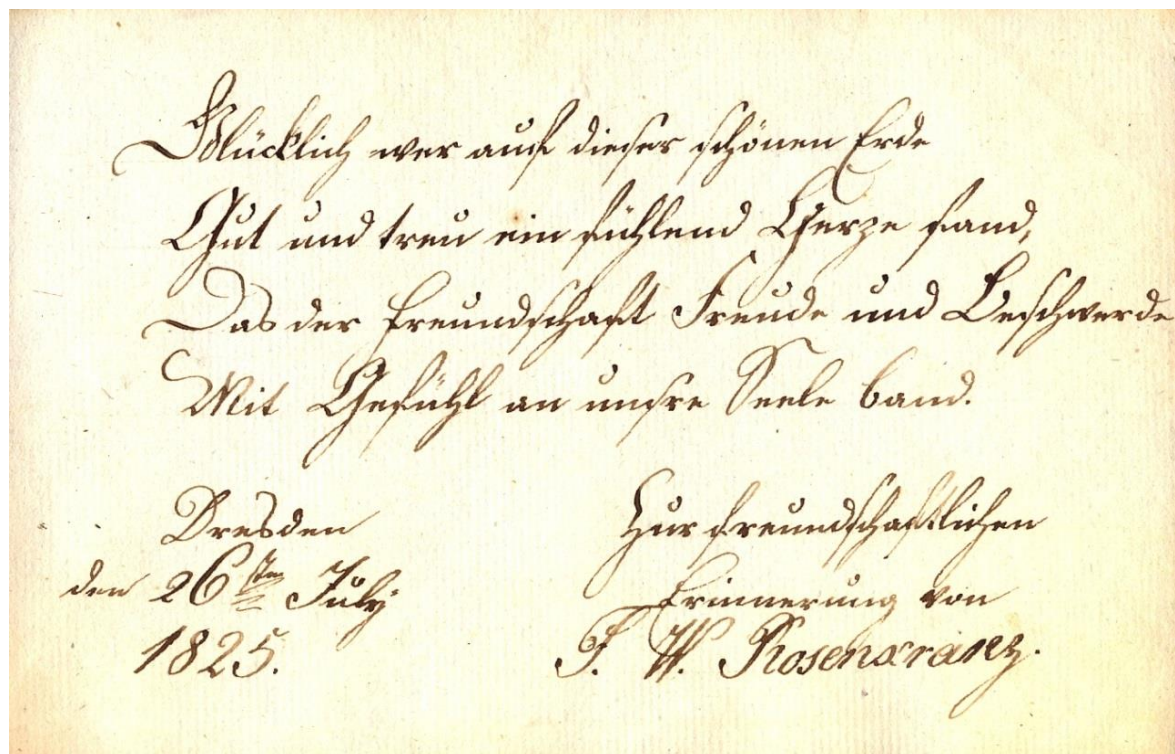 Glücklich wer auf dieser schönen Erde
Gut und treu ein fühlend Herze fand,
Das der Freundschaft Freude und Beschwerde
Mit Gefühl an unsre Seele band.
Dresden
den 26sten July
1825.
Zur freundschaftlichen
Erinnerung von
F. W. Rosenkranz.